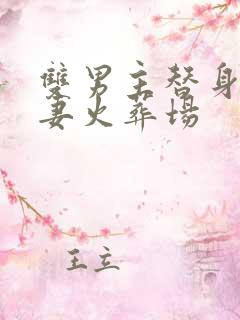 雙男主替身
妻火葬場
王立